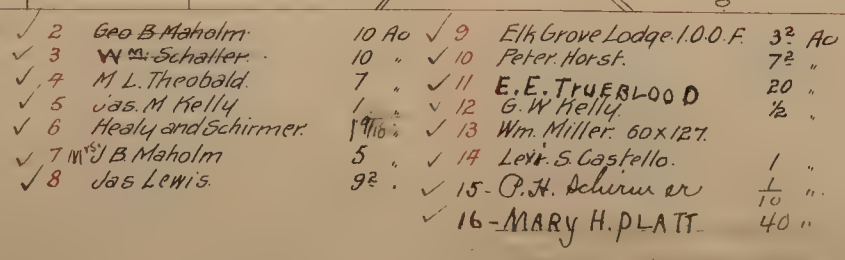 ✓ 2 Geo B Maholm. 10 Ac
✓ 3 Wm. Schaller. 10 "
✓ 4 M L. Theobald. 7 "
✓ 5 Jas. M Kelly 1 "
✓ 6 Healy and Schirmer. 1 9/10 "
✓ 7 Mrs. J B. Maholm 5 "
✓ 8 Jas Lewis. 9² "
✓ 9 Elk Grove Lodge. I.O.O.F. 3² Ac
✓ 10 Peter. Horst. 7² "
✓ 11 E.E. TRUEBLOOD 20 "
✓ 12 G. W Kelly. ½ "
✓ 13 Wm. Miller. 60 X 127.
✓ 14 Levi. S. Costello. 1 "
✓ 15- P.H. Schirmer 1/10 "
✓ 16- MARY H. PLATT 40 "